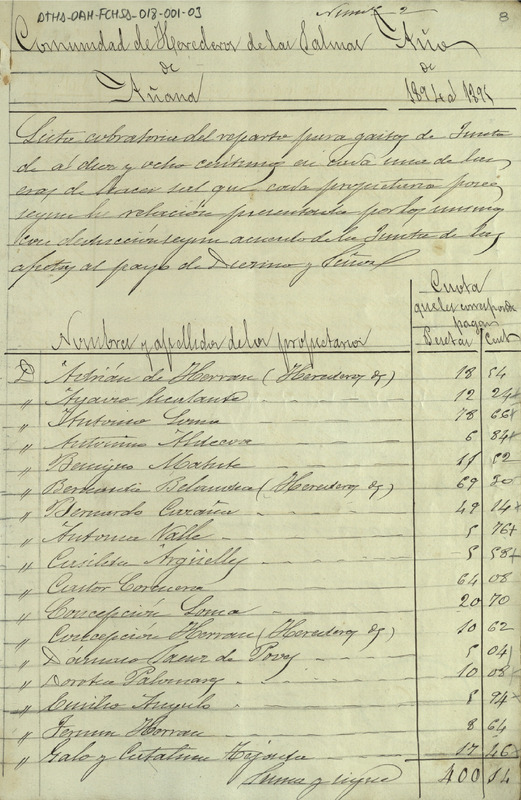 DTHS-OAH-FCHSS-018-001-03
Numº 2
8
Comunidad de Herederos de las Salinas
de
Añana
Año
de
1894 al 1895
Lista cobratoria del reparto para gastos de Junta
de al diez y ocho centimos en cada una de las
eras de hacer sal que cada propietario posee
segun la relación presentada por los mismos
con deducción segun acuerdo de la Junta de las
al pago de Diezmo y
Cuota
que les corresponde
pagar
Nombres y apellidos de los propietarios
Pesetas Cent
D Adrián de Herran (Herederos de) 18 54
" 12 24
" Antonio Loma 78 66
" Antonino Aldecoa 6 84
" Benigno Matute 17 82
" Bernardo (Herederos de) 69 20
" Bernardo 49 14
" Antonia Valle 5 76
" Casilda Argüelles 5 58
" Castor Corcuera 64 08
" Concepción Loma 20 70
" Concepción Herran (Herederos de) 10 62
" Dámaso Saenz de Poves 5 04
" Dorotea Palomares 10 08
" Emilio Angulo 5 94
" Fermin Herran 8 64
" Galo y Catalina 17 46
Suma y sigue 400 14